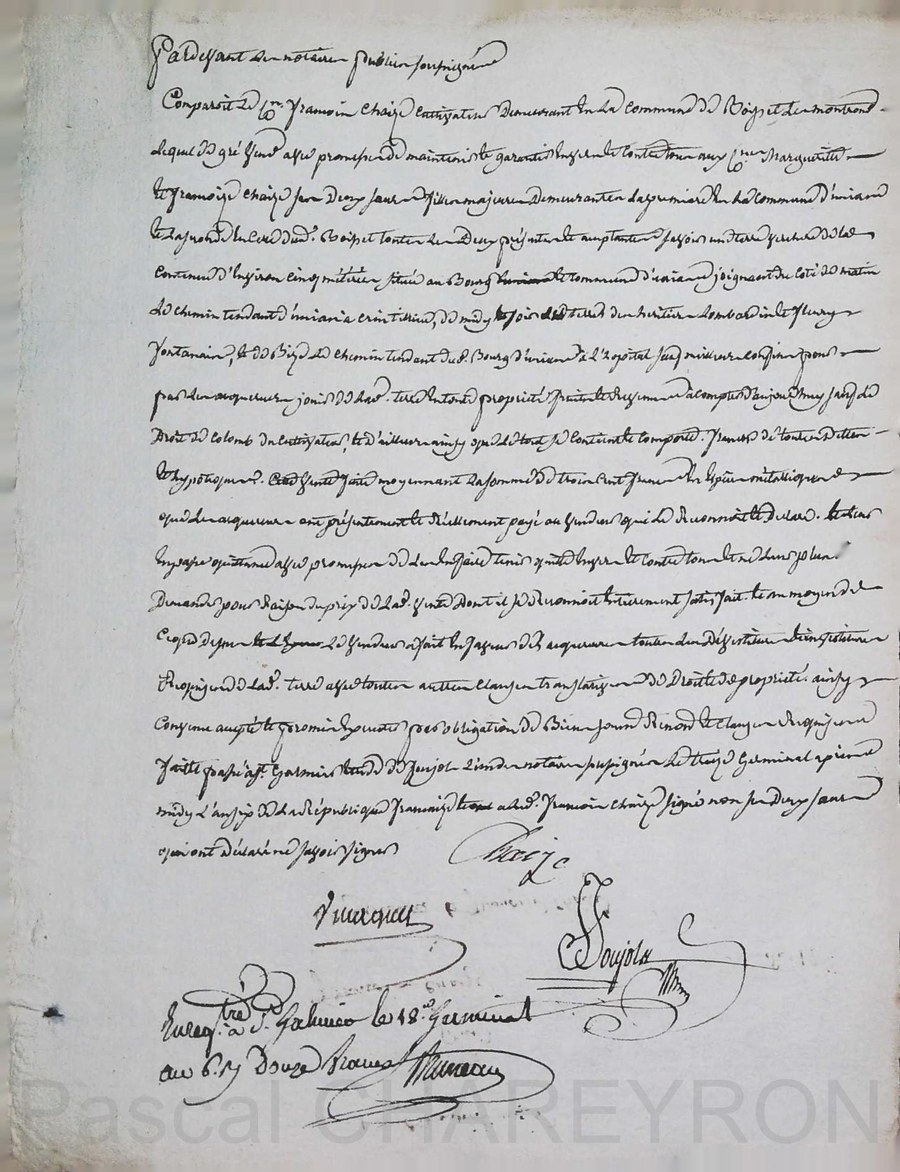 Pardevant les notaires publics soussignés
Comparoit le Cen. François Chaize cultivateur demeurant en la commune de Boisset les montrond
lequel de gré vend avec promesse de maintenir et garantir envers et contre tous aux Cnes Margueritte
et Françoize Chaize ses deux sœurs filles majeures demeurantes la première en la commune d'
et la seconde en celle dud. Boisset toutes les deux présentes et acceptantes savoir une terre de lad
contenue d'environ cinq métérées située au Bourg et commune d' joignant du coté de matin
le chemin tendant d' a Craintilleux, de midy et soir les terres des heritiers Lombardin et Fleury
Fontanais, et de Bize le chemin tendant dud. Bourg d' à l'hopital sauf meilleurs confins pour
par les acquereurs jouir de lad. terre en toute propriété fruits et revenus à compter d'aujourd'huy sauf le
droit de colomb du cultivateur, et d'ailleurs ainsy que le tout se contient et comporte. Franche de toutes dettes
et hypotèques. Cette vente faite moyennant la somme de trois cent francs en espèces métalliques
que les acquereurs ont présentement et réellement payé au vendeur qui le reconnoit et declare. et leur
en passe quittance avec promesse de les en faire tenir quitte envers et contre tous et ne leur plus
demander pour raison du prix de lad. vente dont il se reconnoit entièrement satisfait. et au moyen de
ce que dessus le vendeur a fait en faveur des acquereurs toutes les dévestiture et investiture
requises de lad. terre avec toutes autres clauses translatives de droit et de propriété. ainsy
convenu accepté et promis executer par obligation de Biens soumis renoncé et clauses requises
Fait et passé a St. Garmier etude de Poujola l'un des notaires soussignés le treize Germinal après
midy l'an six de la République Française led. François Chaize signé non ses deux sœurs
qui ont déclaré ne savoir signer
Chaize
Poujola
Enregtré à St. Galmier le 18 Germinal
an 6. Rç Douze francs
Pascal CHAREYRON